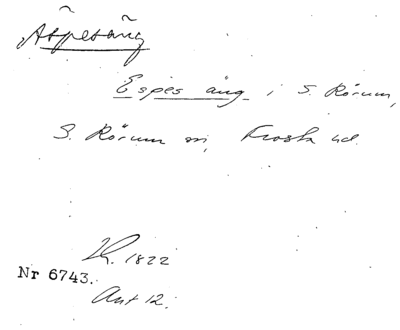 Äspesäng
Espes äng i S. Rörum,
S. Rörum sn, Frosta hd.
K. 1822
Nr 6743.
Akt 12.